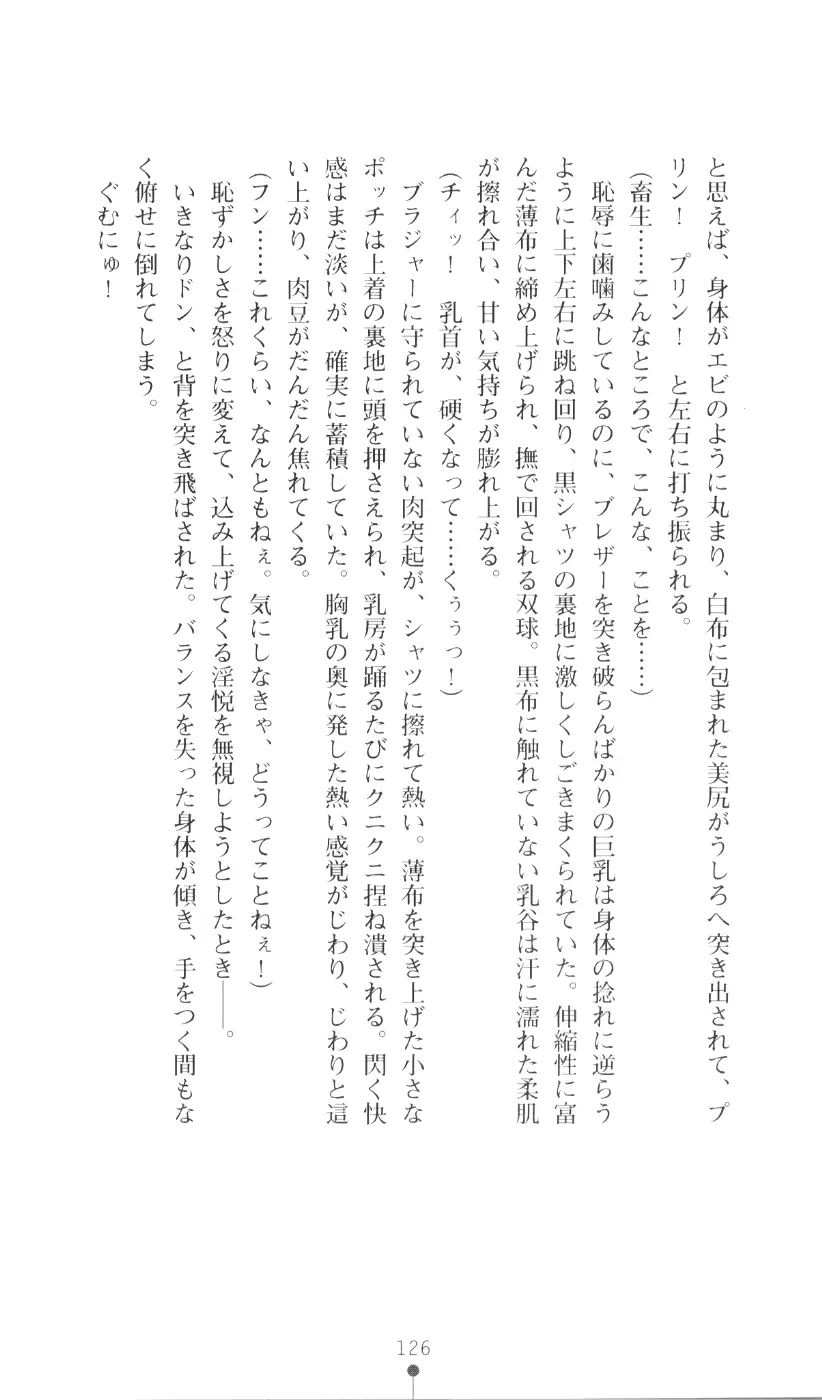 と思えば、身体がエビのように丸まり、白布に包まれた美尻がうしろへ突き出されて、プ
リン！　プリン！　と左右に打ち振られる。
（畜生……こんなところで、こんな、ことを……）
　恥辱に歯噛みしているのに、ブレザーを突き破らんばかりの巨乳は身体の捻れに逆らう
ように上下左右に跳ね回り、黒シャツの裏地に激しくしごきまくられていた。伸縮性に富
んだ薄布に締め上げられ、撫で回される双球。黒布に触れていない乳谷は汗に濡れた柔肌
が擦れ合い、甘い気持ちが膨れ上がる。
（チィッ！　乳首が、硬くなって……くぅぅっ！）
　ブラジャーに守られていない肉突起が、シャツに擦れて熱い。薄布を突き上げた小さな
ポッチは上着の裏地に頭を押さえられ、乳房が踊るたびにクニクニ捏ね潰される。閃く快
感はまだ淡いが、確実に蓄積していた。胸乳の奥に発した熱い感覚がじわり、じわりと這
い上がり、肉豆がだんだん焦れてくる。
（フン……これくらい、なんともねぇ。気にしなきゃ、どうってことねぇ！）
　恥ずかしさを怒りに変えて、込み上げてくる淫悦を無視しようとしたとき――。
　いきなりドン、と背を突き飛ばされた。バランスを失った身体が傾き、手をつく間もな
く俯せに倒れてしまう。
　ぐむにゅ！
126